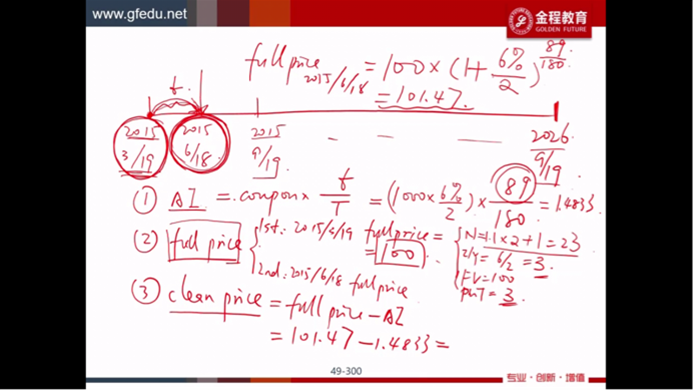 www.gfedu.net
金程教育
GOLDEN FUTURE
full price 2015/6/18 = 100 × (1 + 6%/2)^89/180
= 101.47.
t
2015 3/19
2015 6/18
2015 9/19
- - -
2026 9/19
① AI = coupon × t/T = (100 × 6%/2) × 89/180 = 1.4833
② full price { 1st: 2015/9/19 full price = 100
2nd: 2015/6/18 full price
{ N = 11 × 2 + 1 = 23
I/Y = 6/2 = 3
FV = 100
PMT = 3
③ clean price = full price - AI
= 101.47 - 1.4833 =
49-300
专业·创新·增值